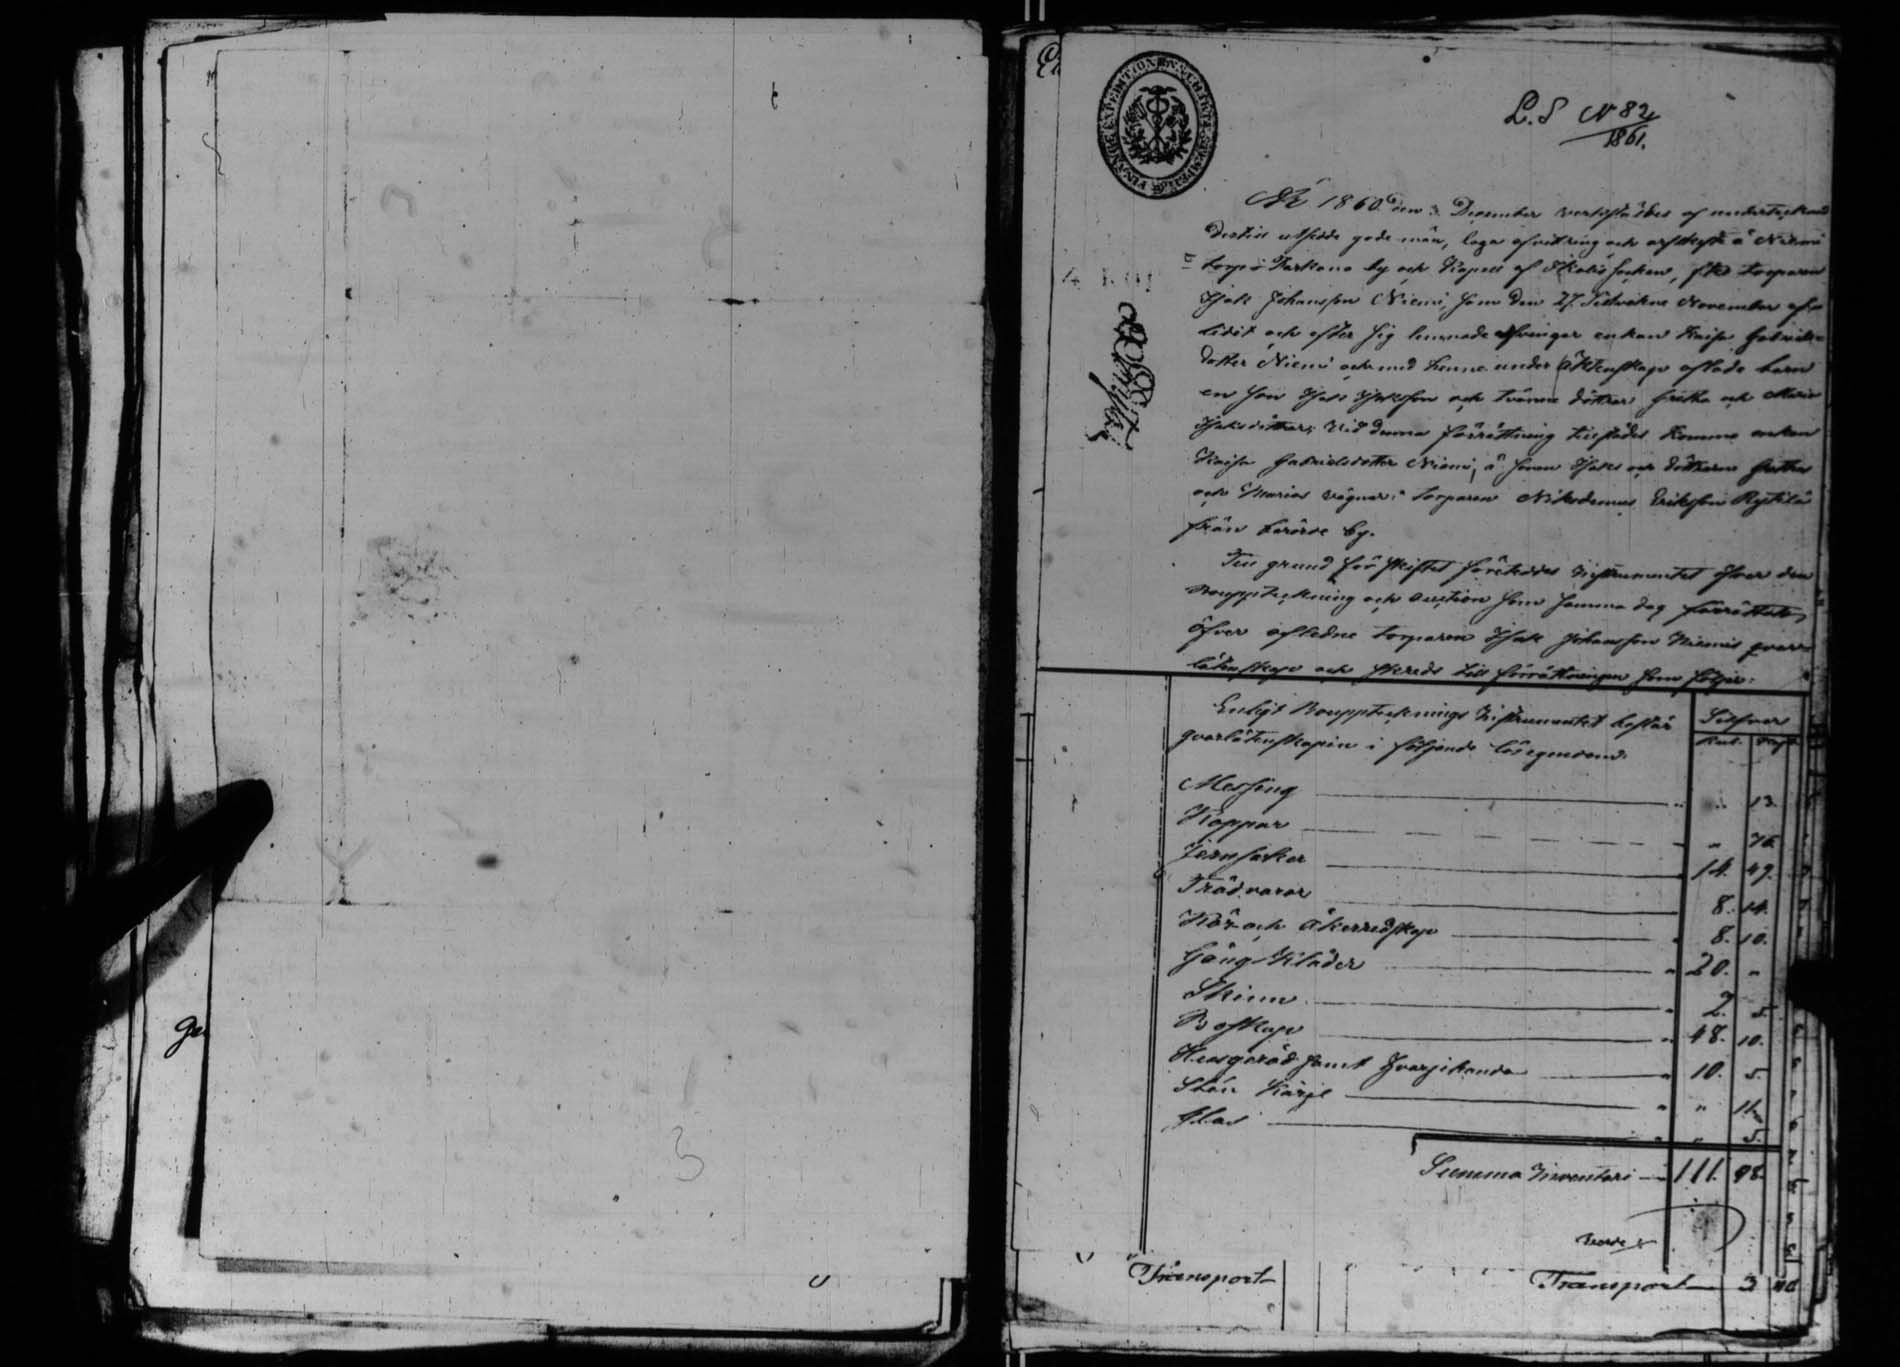 L.S N 82
1861.
FINANCE EXPEDITION
År 1860 den 3 December verkstäldes af undertecknade
dertill utsedde gode män, laga afvittring och arfskifte å Niemi
torp i Parkano by och Kapell af Ikalis socken, efter torparen
Isak Johansson Niemi, som den 27 sistvikne November af-
lidit och efter sig lemnade arfvingar enkan Kaisa Gabriels-
dotter Niemi och med henne under äktenskapet aflade barn
en son Isak Isaksson och tvänne döttrar Gretha och Maria
Isaksdöttrar; vid denna förrättning tillstädes kommo enkan
Kaisa Gabrielsdotter Niemi, å sonen Isaks och döttrarne Grethas
och Marias vägnar: torparen Nikodemus Eriksson
från berörde by.
Till grund för skiftet företeddes instrumentet öfver den
bouppteckning och auction som samma dag förrättats
öfver aflidne torparen Isak Johansson Niemis qvar-
låtenskap och skreds till förrättningen som följer:
Enligt Bouppteknings Instrumentet består
qvarlåtenskapen i följande lösegendom:
Silfver
Rub. Kop.
Messing " 13.
Koppar " 76.
Jernsaker 14. 49.
Trädvaror 8. 14.
Kör och Åkerredskap 8. 10.
Gång Kläder 20. "
Skinn 2. 5.
Boskap 48. 10.
Husgeråd samt hvarjehanda 10. 5.
Sten Kärl " 11.
Glas " 5.
Summa Inventari 111. 98.
Transport
Transport 3